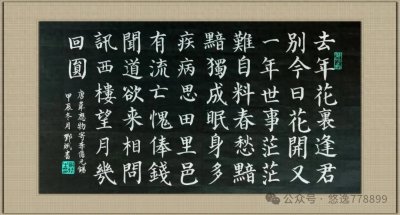 去年花裏逢君
別今日花開又
一年世事茫茫
難自料春愁黯
黯獨成眠身多
疾病思田里邑
有流亡愧俸錢
聞道欲來相問
訊西樓望月幾
回圓
唐韋應物寄李儋元錫
甲辰冬月 書
公众号·悠逸778899